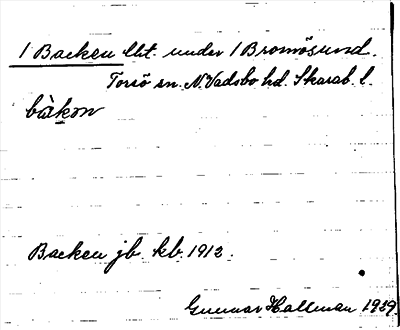 1 Backen lht. under 1 Bromösund.
Torsö sn. N. Vadsbo hd. Skarab. l.
bàkɷn
Backen jb. kb. 1912.
Gunnar Hallman 1929